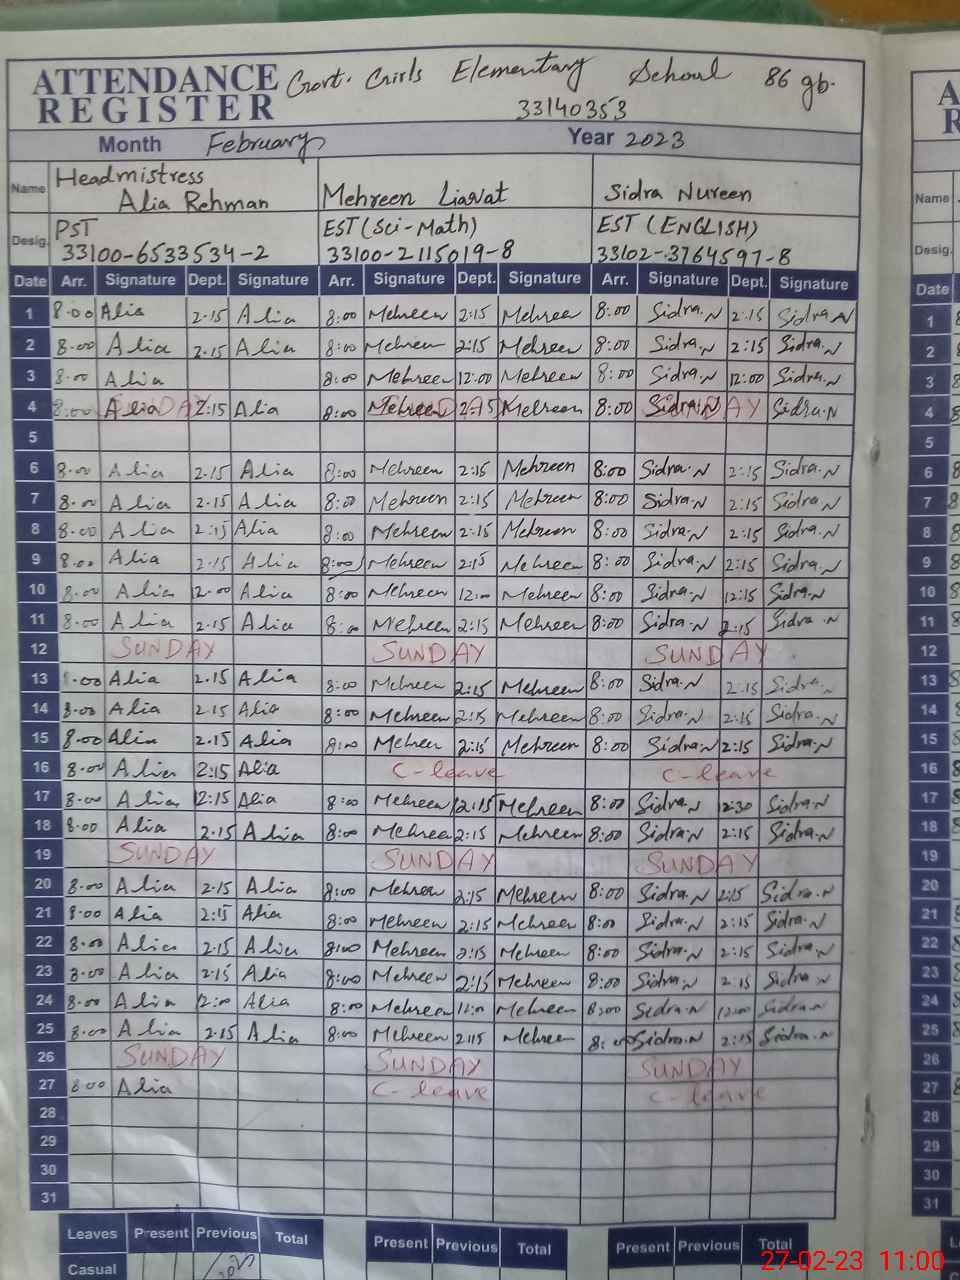 ATTENDANCE REGISTER Govt. Girls Elementary School 86 gb.
33140353
Month February Year 2023
Name Headmistress Alia Rehman Mehreen Liaqat Sidra Nureen
Desig. PST EST (Sci-Math) EST (ENGLISH)
33100-6533534-2 33100-2115019-8 33102-3764597-8
Date Arr. Signature Dept. Signature Arr. Signature Dept. Signature Arr. Signature Dept. Signature
1 8.00 Alia 2.15 Alia 8:00 Mehreen 2:15 Mehreen 8:00 Sidra.N 2:15 Sidra.N
2 8.00 Alia 2.15 Alia 8:00 Mehreen 2:15 Mehreen 8:00 Sidra.N 2:15 Sidra.N
3 8.00 Alia 8:00 Mehreen 12:00 Mehreen 8:00 Sidra.N 12:00 Sidra.N
4 8:00 Alia 2:15 Alia 8:00 Mehreen 2:15 Mehreen 8:00 Sidra.N Sidra.N
5
6 8.00 Alia 2.15 Alia 8:00 Mehreen 2:15 Mehreen 8:00 Sidra.N 2:15 Sidra.N
7 8.00 Alia 2.15 Alia 8:00 Mehreen 2:15 Mehreen 8:00 Sidra.N 2:15 Sidra.N
8 8.00 Alia 2:15 Alia 8:00 Mehreen 2:15 Mehreen 8:00 Sidra.N 2:15 Sidra.N
9 8.00 Alia 2.15 Alia 8:00 Mehreen 2:15 Mehreen 8:00 Sidra.N 2:15 Sidra.N
10 8.00 Alia 12.00 Alia 8:00 Mehreen 12:00 Mehreen 8:00 Sidra.N 12:15 Sidra.N
11 8.00 Alia 2.15 Alia 8:00 Mehreen 2:15 Mehreen 8:00 Sidra.N 2:15 Sidra.N
12 SUNDAY SUNDAY SUNDAY
13 8.00 Alia 2.15 Alia 8:00 Mehreen 2:15 Mehreen 8:00 Sidra.N 2:15 Sidra.N
14 8.00 Alia 2.15 Alia 8:00 Mehreen 2:15 Mehreen 8:00 Sidra.N 2:15 Sidra.N
15 8.00 Alia 2.15 Alia 8:00 Mehreen 2:15 Mehreen 8:00 Sidra.N 2:15 Sidra.N
16 8.00 Alia 2:15 Alia C-leave C-leave
17 8.00 Alia 12:15 Alia 8:00 Mehreen 12:15 Mehreen 8:00 Sidra.N 12:30 Sidra.N
18 8.00 Alia 2.15 Alia 8:00 Mehreen 2:15 Mehreen 8:00 Sidra.N 2:15 Sidra.N
19 SUNDAY SUNDAY SUNDAY
20 8.00 Alia 2.15 Alia 8:00 Mehreen 2:15 Mehreen 8:00 Sidra.N 2:15 Sidra.N
21 8.00 Alia 2:15 Alia 8:00 Mehreen 2:15 Mehreen 8:00 Sidra.N 2:15 Sidra.N
22 8.00 Alia 2.15 Alia 8:00 Mehreen 2:15 Mehreen 8:00 Sidra.N 2:15 Sidra.N
23 8.00 Alia 2.15 Alia 8:00 Mehreen 2:15 Mehreen 8:00 Sidra.N 2:15 Sidra.N
24 8.00 Alia 12:00 Alia 8:00 Mehreen Mehreen 8:00 Sidra.N 12:00 Sidra.N
25 8.00 Alia 2.15 Alia 8:00 Mehreen 2:15 Mehreen 8:00 Sidra.N 2:15 Sidra.N
26 SUNDAY SUNDAY SUNDAY
27 8.00 Alia C-leave C-leave
28
29
30
31
Leaves Present Previous Total Present Previous Total Present Previous Total
Casual
27-02-23 11:00